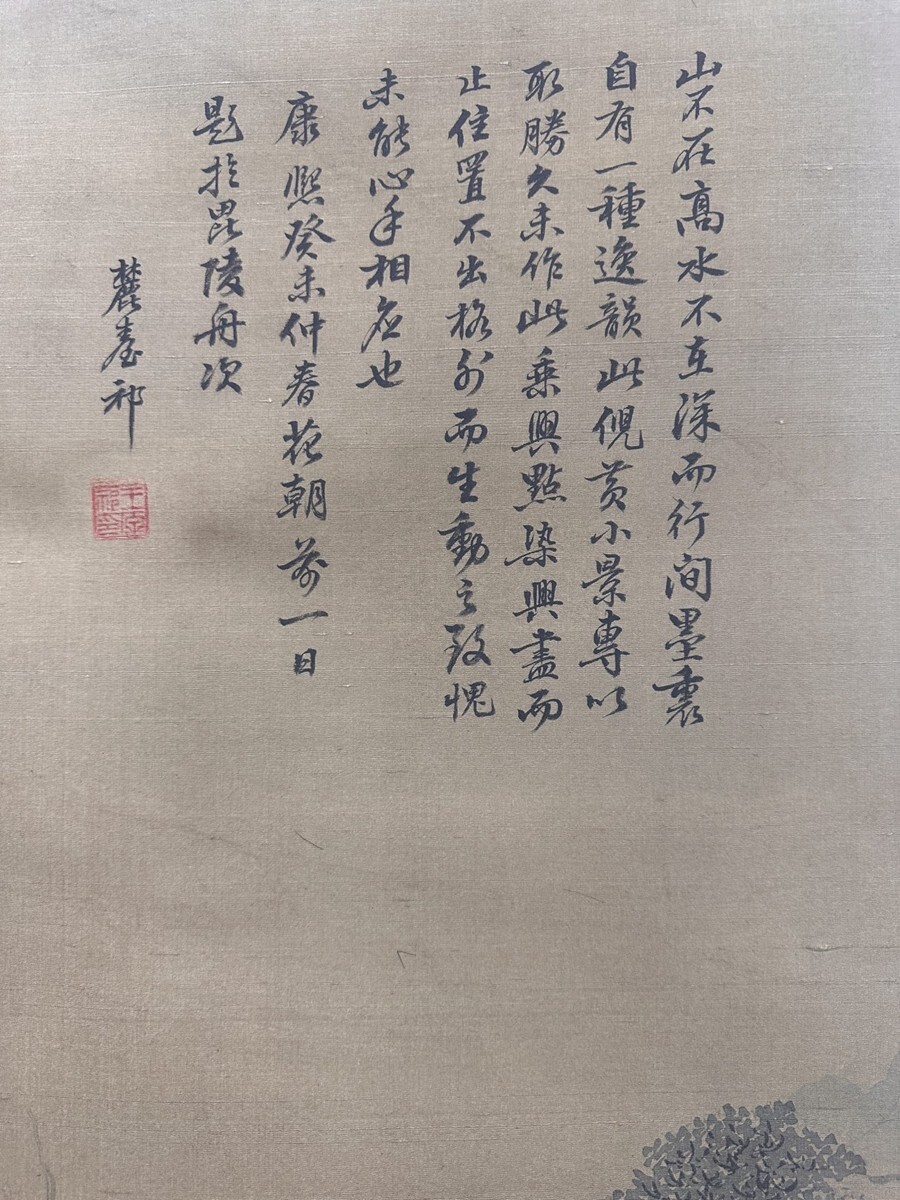 山不在高水不在深而行間墨裏
自有一種逸韻此倪黃小景專以
取勝久未作此乘興點染興盡而
止位置不出格外而生動之致愧
未能心手相應也
康熙癸未仲春花朝前一日
題於毘陵舟次
麓臺祁
王原
祁印